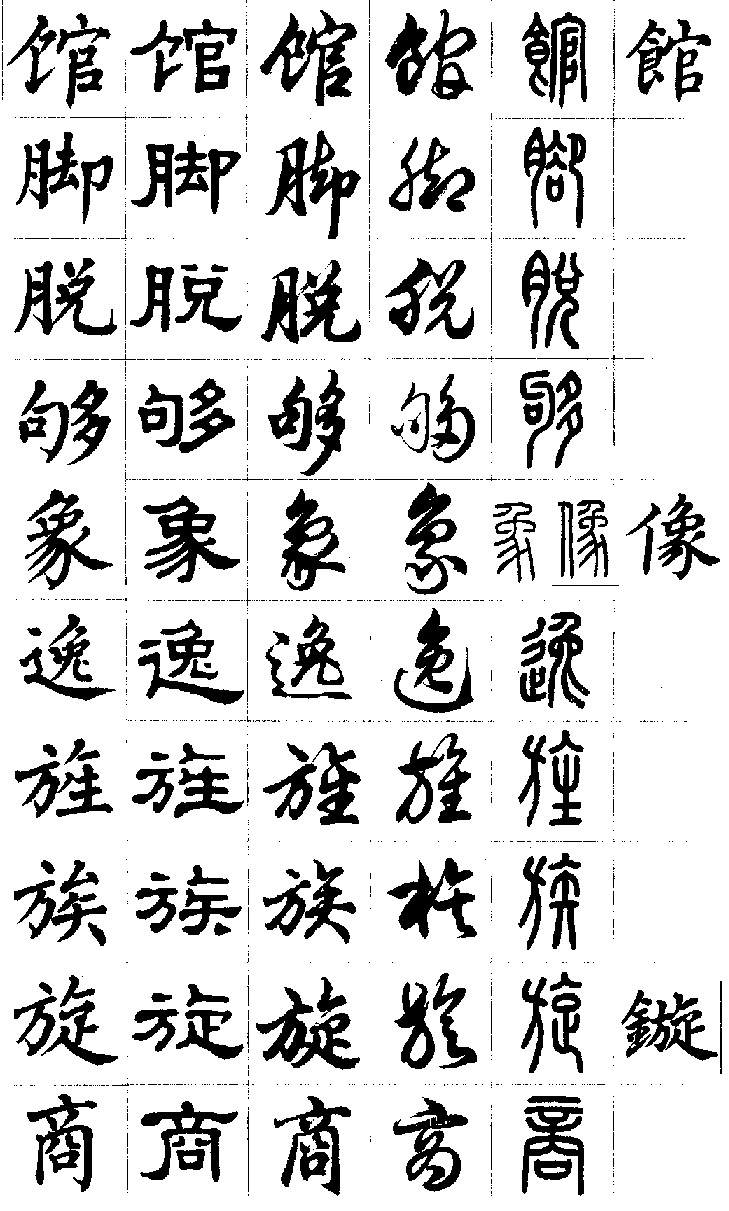 馆 馆 馆 馆 館 館
脚 脚 脚 脚 腳
脱 脱 脱 脱 脱
够 够 够 够 够
象 象 象 象 象 像 像
逸 逸 逸 逸 逸
旌 旌 旌 旌 旌
族 族 族 族 族
旋 旋 旋 旋 旋 鏇
商 商 商 商 商